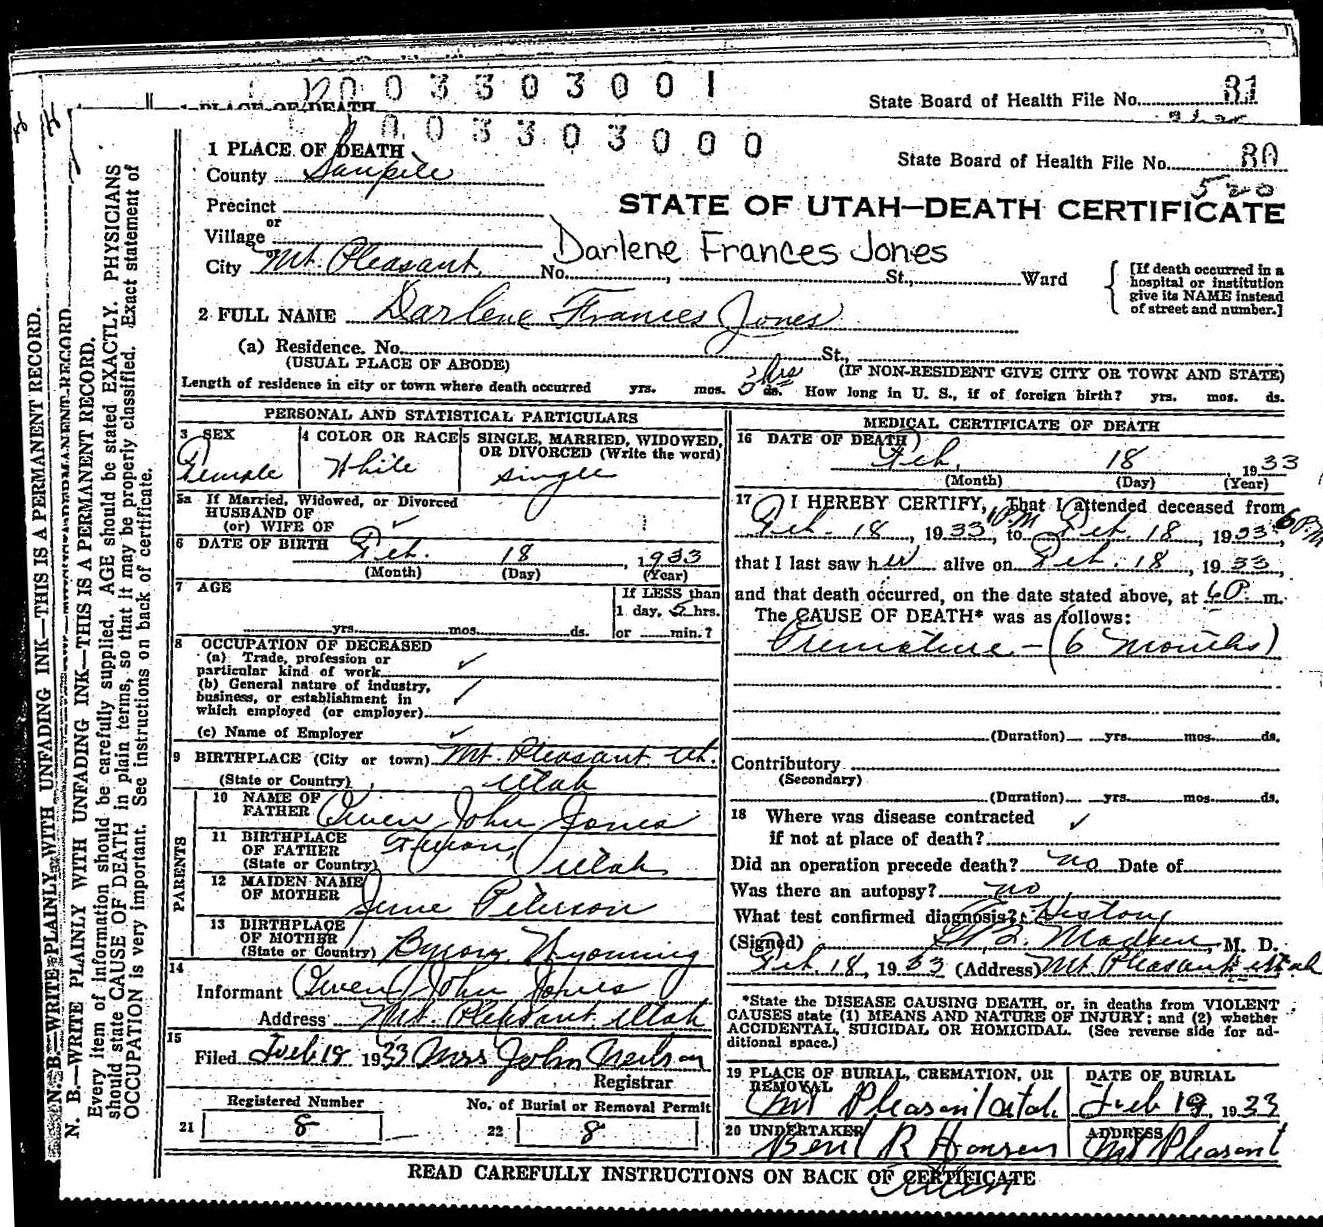 0 0 3 3 0 3 0 0 1
State Board of Health File No. 81
1 PLACE OF DEATH
0 0 3 3 0 3 0 0 0
State Board of Health File No. 80
520
1 PLACE OF DEATH
County Sanpete
STATE OF UTAH—DEATH CERTIFICATE
Precinct
or
Village
Darlene Frances Jones
or
City Mt. Pleasant No. , St., Ward
[If death occurred in a hospital or institution give its NAME instead of street and number.]
2 FULL NAME Darlene Frances Jones
(a) Residence. No. St.,
(USUAL PLACE OF ABODE) (IF NON-RESIDENT GIVE CITY OR TOWN AND STATE)
Length of residence in city or town where death occurred yrs. mos. 5 hrs ds. How long in U. S., if of foreign birth? yrs. mos. ds.
PERSONAL AND STATISTICAL PARTICULARS
3 SEX
Female
4 COLOR OR RACE
White
5 SINGLE, MARRIED, WIDOWED,
OR DIVORCED (Write the word)
single
5a If Married, Widowed, or Divorced
HUSBAND OF
(or) WIFE OF
6 DATE OF BIRTH Feb. 18, 1933
(Month) (Day) (Year)
7 AGE
yrs. mos. ds.
If LESS than
1 day, 5 hrs.
or min.?
8 OCCUPATION OF DECEASED
(a) Trade, profession or
particular kind of work
(b) General nature of industry,
business, or establishment in
which employed (or employer)
(c) Name of Employer
9 BIRTHPLACE (City or town) Mt. Pleasant, Ut.
(State or Country) Utah
PARENTS
10 NAME OF
FATHER Owen John Jones
11 BIRTHPLACE
OF FATHER
(State or Country) Utah
12 MAIDEN NAME
OF MOTHER Peterson
13 BIRTHPLACE
OF MOTHER
(State or Country) Byron, Wyoming
14
Informant Owen John Jones
Address Mt. Pleasant, Utah
15
Filed Feb 19 1933 Mrs John Neilson
Registrar
Registered Number
21 8
No. of Burial or Removal Permit
22 8
MEDICAL CERTIFICATE OF DEATH
16 DATE OF DEATH
Feb. 18, 1933
(Month) (Day) (Year)
17 I HEREBY CERTIFY, That I attended deceased from
Feb. 18, 1933, 1 P.M to Feb. 18, 1933, 6 P.M
that I last saw her alive on Feb. 18, 1933,
and that death occurred, on the date stated above, at 6 P. m.
The CAUSE OF DEATH* was as follows:
Premature — (6 months)
(Duration) yrs. mos. ds.
Contributory
(Secondary)
(Duration) yrs. mos. ds.
18 Where was disease contracted
if not at place of death?
Did an operation precede death? no Date of
Was there an autopsy? no
What test confirmed diagnosis? History
(Signed) Madsen, M. D.
Feb. 18, 1933 (Address) Mt. Pleasant Utah
*State the DISEASE CAUSING DEATH, or, in deaths from VIOLENT
CAUSES state (1) MEANS AND NATURE OF INJURY; and (2) whether
ACCIDENTAL, SUICIDAL OR HOMICIDAL. (See reverse side for ad-
ditional space.)
19 PLACE OF BURIAL, CREMATION, OR
REMOVAL
Mt Pleasant Utah
DATE OF BURIAL
Feb 19, 1933
20 UNDERTAKER
Bent R Hansen
ADDRESS
Mt Pleasant
READ CAREFULLY INSTRUCTIONS ON BACK OF CERTIFICATE
N. B.—WRITE PLAINLY WITH UNFADING INK—THIS IS A PERMANENT RECORD.
N. B.—WRITE PLAINLY WITH UNFADING INK—THIS IS A PERMANENT RECORD.
Every item of information should be carefully supplied. AGE should be stated EXACTLY. PHYSICIANS
should state CAUSE OF DEATH in plain terms, so that it may be properly classified. Exact statement of
OCCUPATION is very important. See instructions on back of certificate.